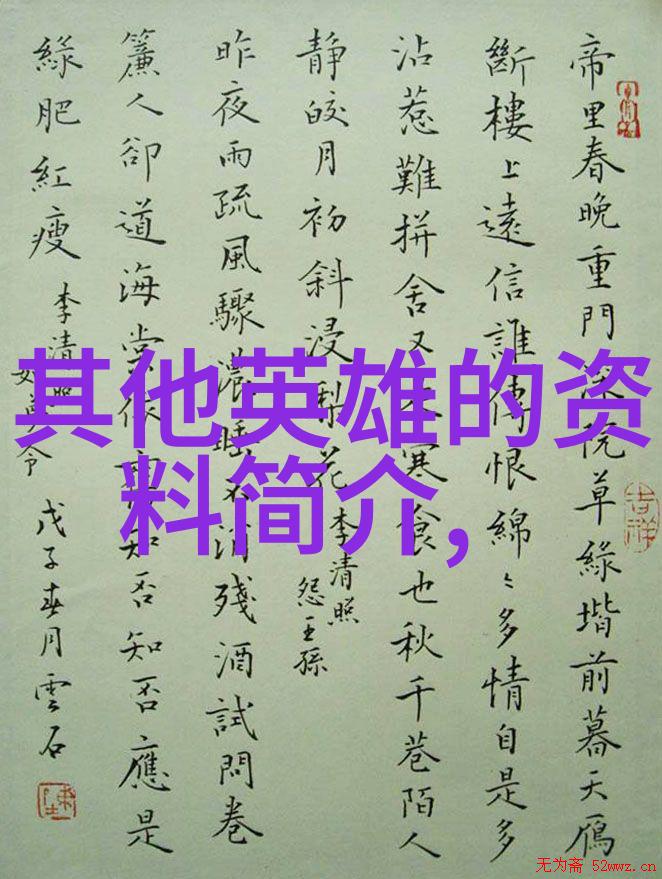 帝里春晚重門深院草緑堦前暮天鴈
斷樓上遠信誰傳恨綿〻多情自是多
沾惹難拼舍又是寒食也秋千巷陌人
靜皎月初斜浸梨花
李清照
怨王孫
昨夜雨疏風驟濃睡不消殘酒試問卷
簾人卻道海棠依舊知否知否應是
綠肥紅瘦
李清照
如夢令
戊子春月雲石
吉祥
其他英雄的资
料简介,
无为斋 52wwz.cn